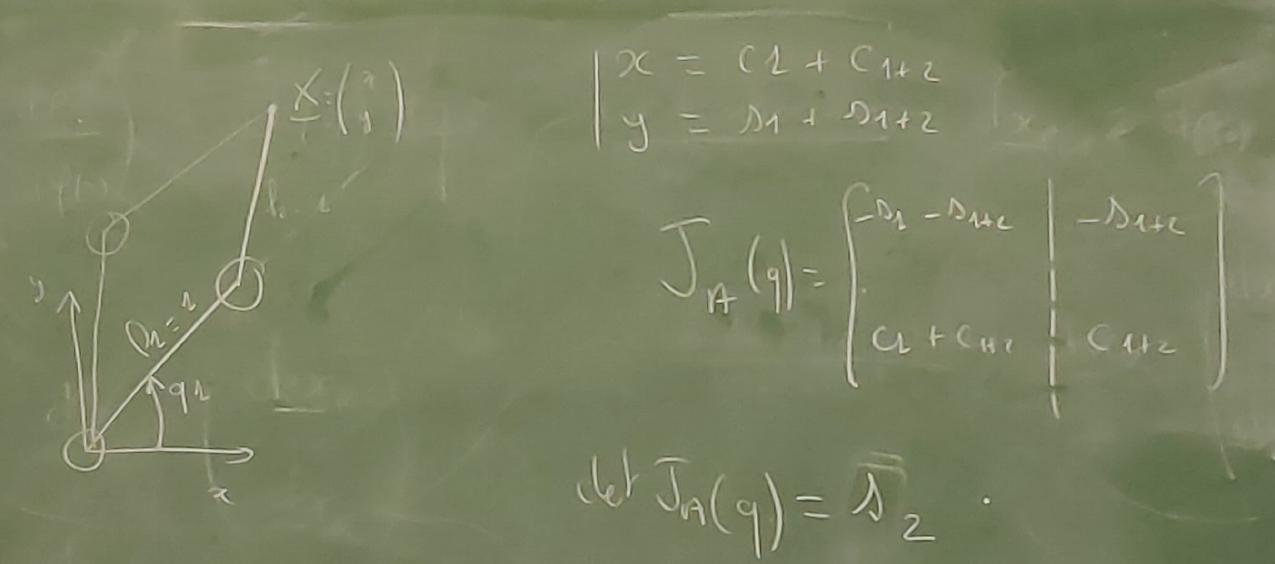 X = (x y)
y
l1 = 1
q1
x
x = c1 + c1+2
y = s1 + s1+2
J_A(q) = [ -s1 - s1+2 | -s1+2
c1 + c1+2 | c1+2 ]
det J_A(q) = s2